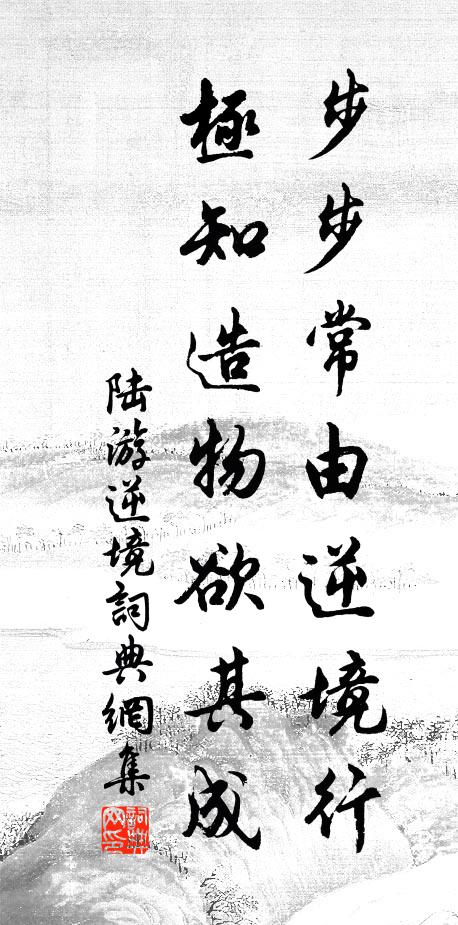 步步常由逆境行
極知造物欲其成
陸游逆境詞典網集